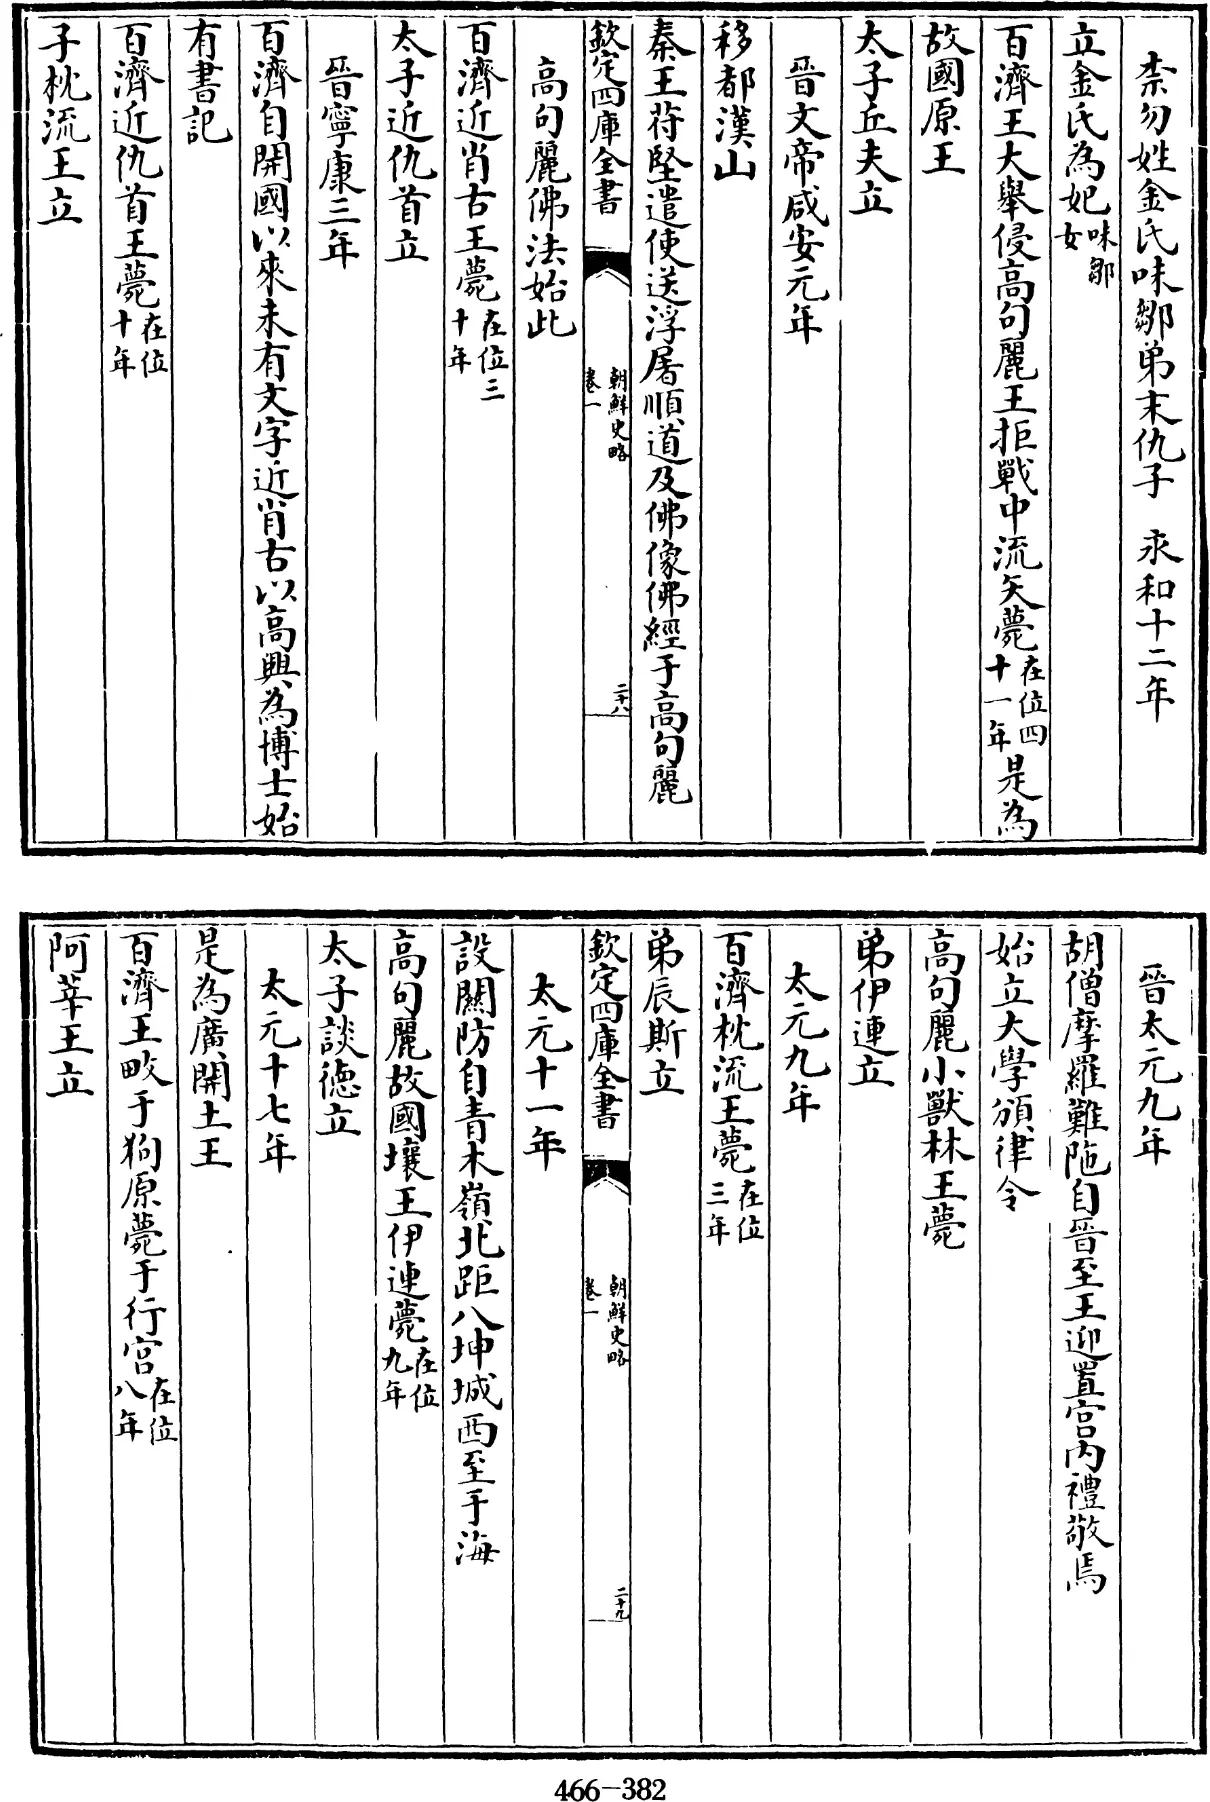 柰勿姓金氏味鄒弟末仇子 永和十二年
立金氏為妃味鄒女
百濟王大舉侵高句麗王拒戰中流矢薨在位四十一年是為
故國原王
太子丘夫立
晉文帝咸安元年
移都漢山
秦王苻堅遣使送浮屠順道及佛像佛經于高句麗
欽定四庫全書 朝鮮史略 卷一 二十八
高句麗佛法始此
百濟近肖古王薨在位三十年
太子近仇首立
晉寧康三年
百濟自開國以來未有文字近肖古以高興為博士始
有書記
百濟近仇首王薨在位十年
子枕流王立
晉太元九年
胡僧摩羅難陁自晉至王迎置宮內禮敬焉
始立大學頒律令
高句麗小獸林王薨
弟伊連立
太元九年
百濟枕流王薨在位三年
弟辰斯立
欽定四庫全書 朝鮮史略 卷一 二十九
太元十一年
設關防自青木嶺北距八坤城西至于海
高句麗故國壤王伊連薨在位九年
太子談德立
太元十七年
是為廣開土王
百濟王畋于狗原薨于行宮在位八年
阿莘王立
466-382